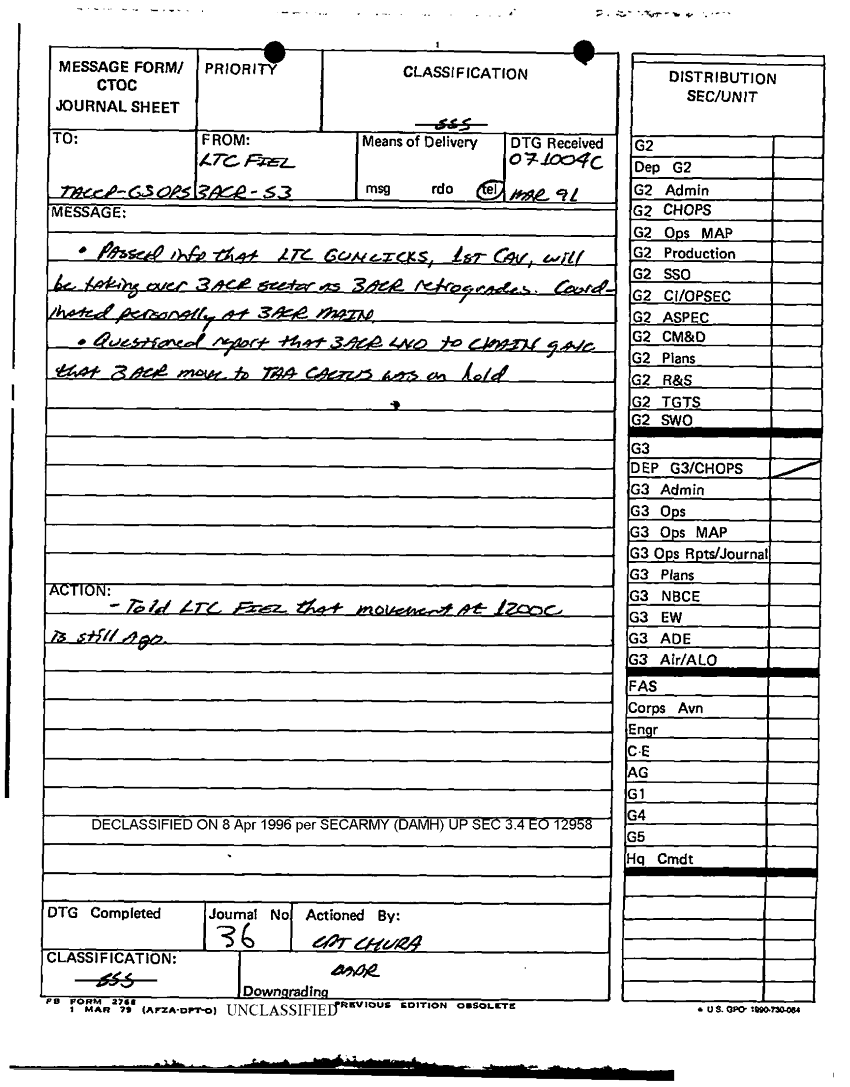 1
MESSAGE FORM/
CTOC
JOURNAL SHEET
PRIORITY
CLASSIFICATION
SSS
TO:
TACCP-G3OPS
FROM:
LTC FIEL
3ACR-S3
Means of Delivery
msg rdo tel
DTG Received
071004C
MAR 91
MESSAGE:
• Passed info that LTC GUNLICKS, 1ST CAV, will
be taking over 3ACR sector as 3ACR retrogrades. Coord-
inated personally at 3ACR MAIN.
• Questioned report that 3ACR LNO to CMAIN gave
that 3ACR move to TAA CACTUS was on hold
ACTION:
- Told LTC FIEL that movement at 1200C
is still a go.
DECLASSIFIED ON 8 Apr 1996 per SECARMY (DAMH) UP SEC 3.4 EO 12958
DTG Completed
Journal No
36
Actioned By:
CPT CHURA
CLASSIFICATION:
SSS
OADR
Downgrading
FB FORM 2768
1 MAR 79 (AFZA-DPT-O) UNCLASSIFIED PREVIOUS EDITION OBSOLETE
DISTRIBUTION
SEC/UNIT
G2
Dep G2
G2 Admin
G2 CHOPS
G2 Ops MAP
G2 Production
G2 SSO
G2 CI/OPSEC
G2 ASPEC
G2 CM&D
G2 Plans
G2 R&S
G2 TGTS
G2 SWO
G3
DEP G3/CHOPS
G3 Admin
G3 Ops
G3 Ops MAP
G3 Ops Rpts/Journal
G3 Plans
G3 NBCE
G3 EW
G3 ADE
G3 Air/ALO
FAS
Corps Avn
Engr
C-E
AG
G1
G4
G5
Hq Cmdt
* U.S. GPO: 1990-730-064